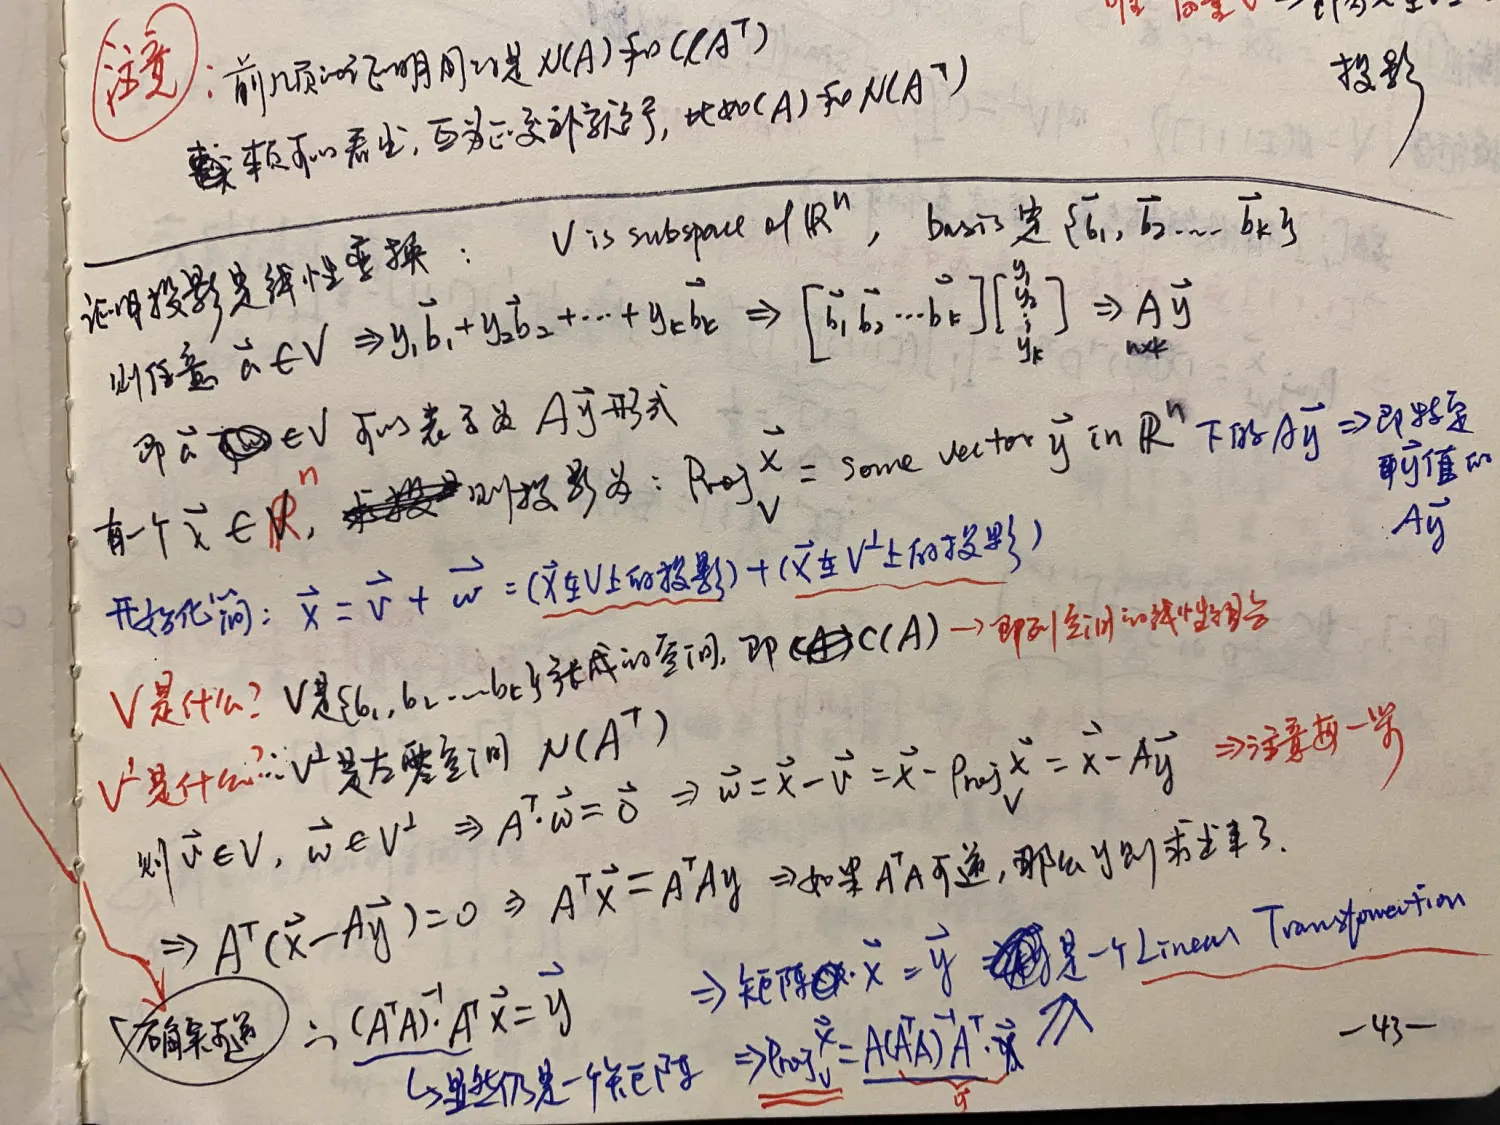 投影
注意：前几页的证明用的是 N(A) 和 C(Aᵀ)
本页可以看出，互为正交补就行，比如C(A) 和 N(Aᵀ)
证明投影是线性变换： V is subspace of ℝⁿ， basis 是 {b⃗₁, b⃗₂ .... b⃗ₖ}
则任意 a⃗ ∈ V ⇒ y₁b⃗₁ + y₂b⃗₂ + ··· + yₖb⃗ₖ ⇒ [b⃗₁ b⃗₂ ··· b⃗ₖ] [y₁ y₂ ⋮ yₖ] ⇒ A y⃗
n×k
即 a⃗ ∈ V 可以表示为 A y⃗ 形式
有一个 x⃗ ∈ ℝⁿ， 则投影为： Proj_V x⃗ = some vector y⃗ in ℝⁿ 下的 A y⃗ ⇒ 即特定
取y⃗值的
A y⃗
开始化简： x⃗ = v⃗ + w⃗ = (x⃗在V上的投影) + (x⃗在V^⊥上的投影)
V是什么？ V是{b₁, b₂ ... bₖ}张成的空间，即 C(A) → 即列空间的线性组合
V^⊥是什么？∴ V^⊥是左零空间 N(Aᵀ)
则 v⃗ ∈ V， w⃗ ∈ V^⊥ ⇒ Aᵀ·w⃗ = 0⃗ ⇒ w⃗ = x⃗ − v⃗ = x⃗ − Proj_V x⃗ = x⃗ − A y⃗ ⇒ 注意每一步
⇒ Aᵀ(x⃗ − A y⃗) = 0 ⇒ Aᵀ x⃗ = AᵀA y ⇒ 如果 AᵀA 可逆，那么 y 则求出来了.
确实可逆 ∴ (AᵀA)⁻¹·Aᵀ x⃗ = y⃗ ⇒ 矩阵·x⃗ = y⃗ ⇒ 是一个 Linear Transformation
↳ 显然仍是一个矩阵 ⇒ Proj_V x⃗ = A(AᵀA)⁻¹Aᵀ·x⃗
y⃗
—43—